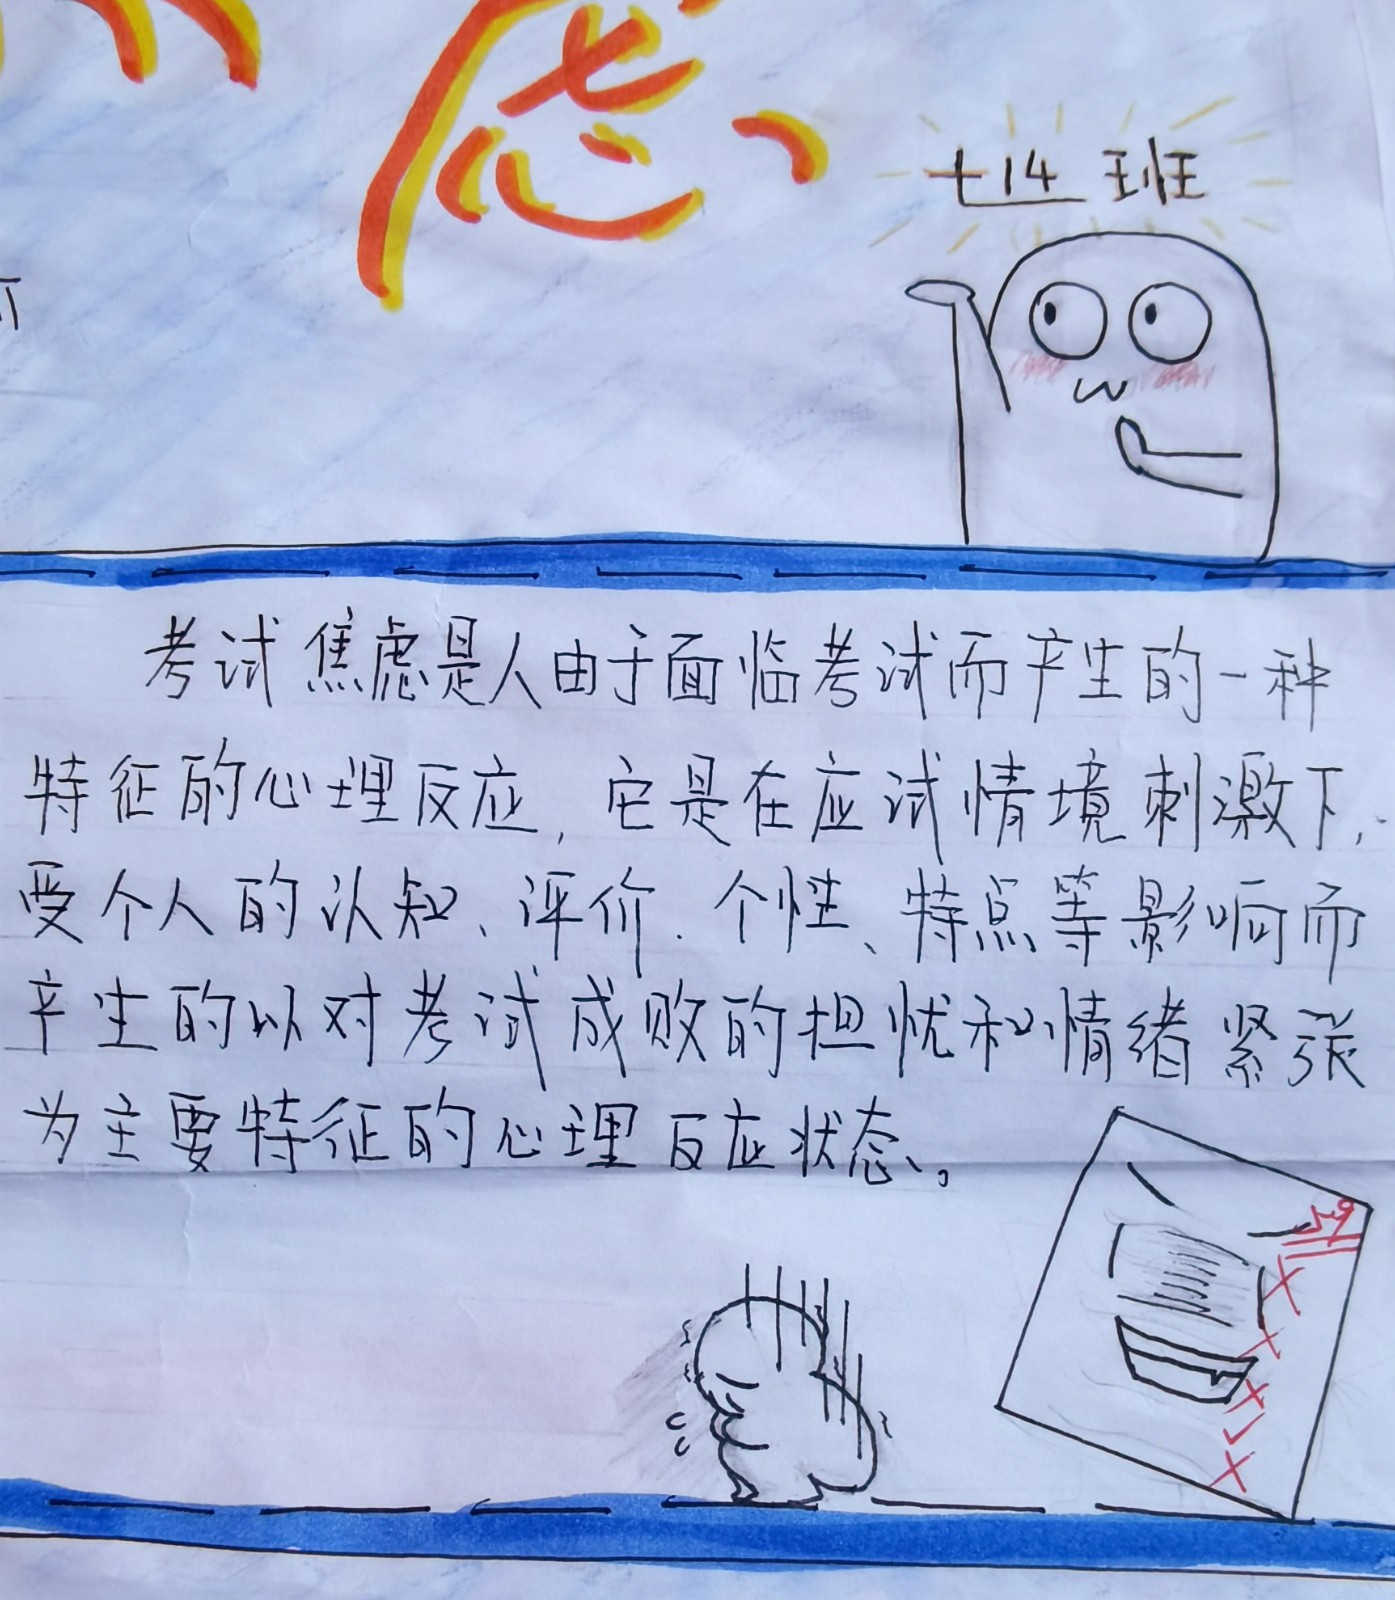 虑
七14 班
考试焦虑是人由于面临考试而产生的一种
特征的心理反应,它是在应试情境刺激下,
受个人的认知、评价、个性、特点等影响而
产生的以对考试成败的担忧和情绪紧张
为主要特征的心理反应状态。
59